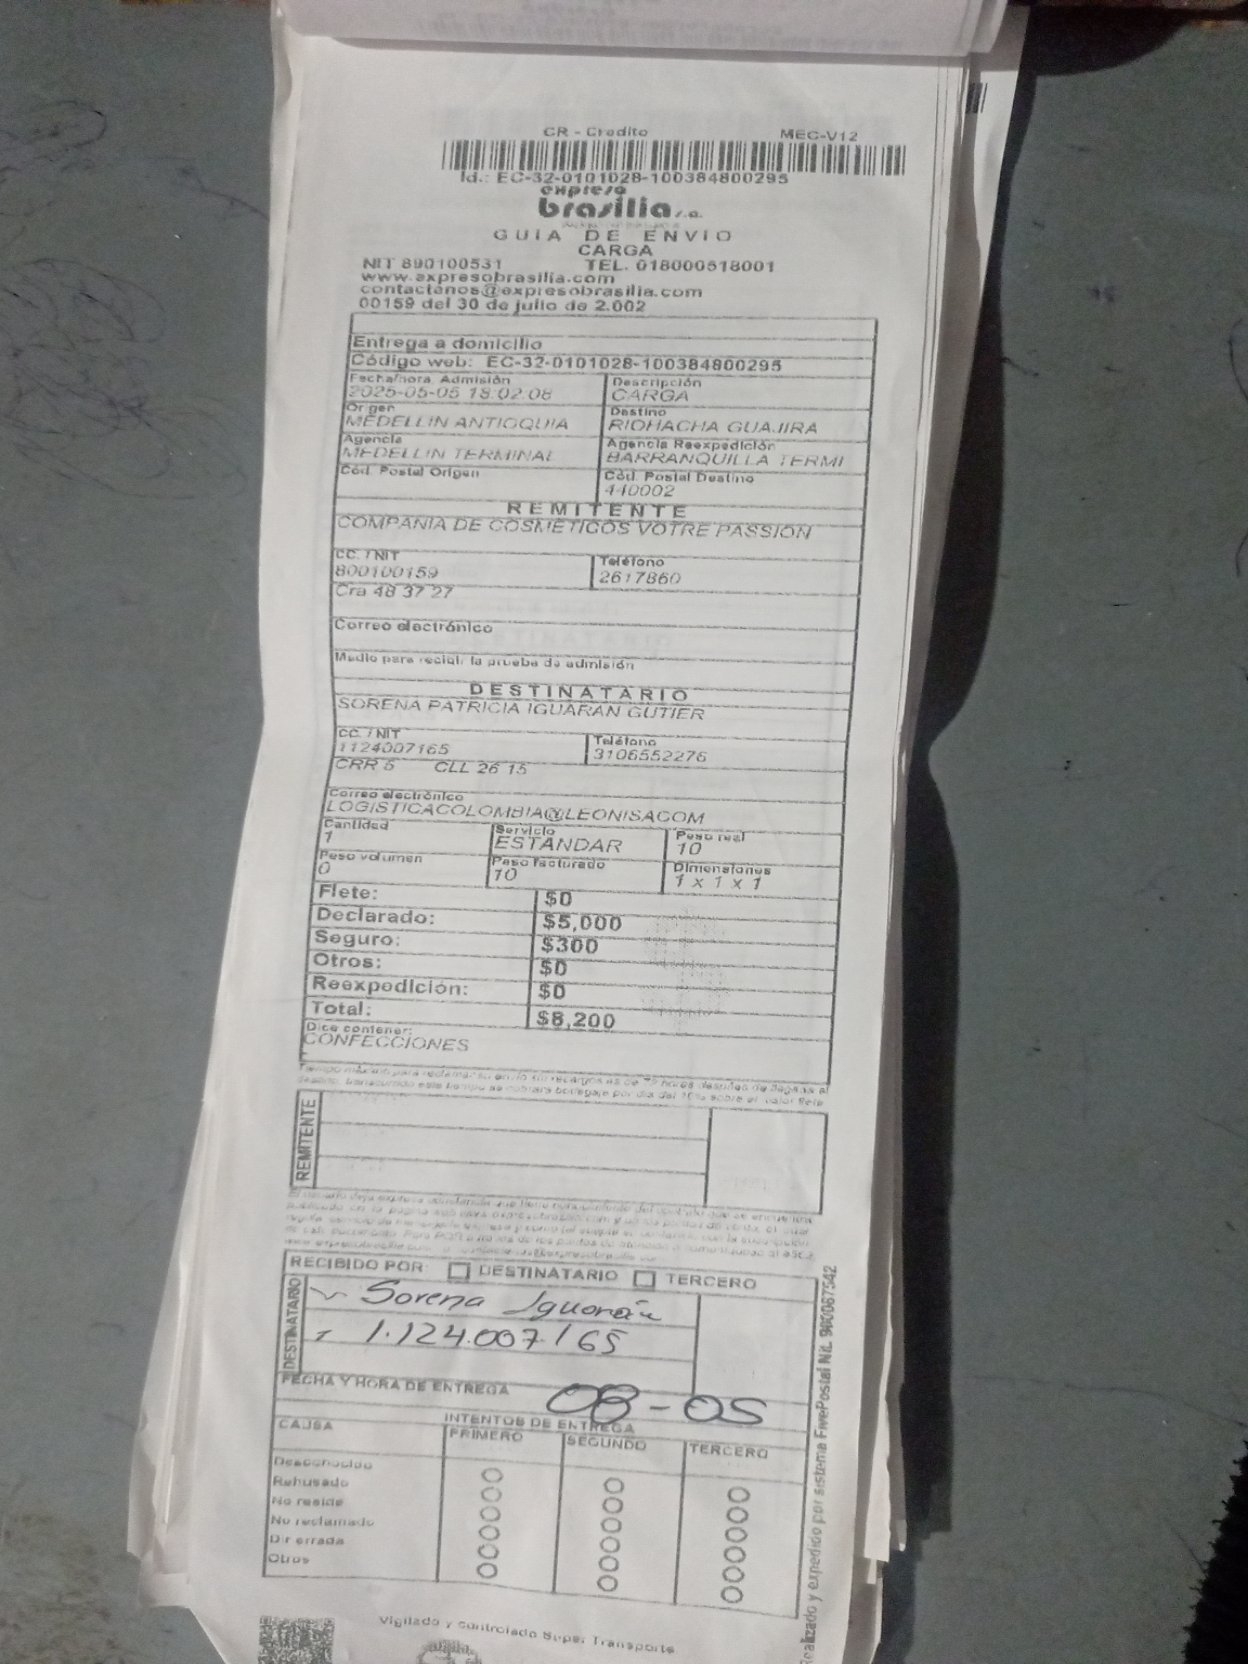 CR - Credito MEC-V12
Id.: EC-32-0101028-100384800295
expreso
brasilia s.a.
GUIA DE ENVIO
CARGA
NIT 890100531 TEL. 018000518001
www.expresobrasilia.com
contactenos@expresobrasilia.com
00159 del 30 de julio de 2.002
Entrega a domicilio
Código web: EC-32-0101028-100384800295
Fecha/hora Admisión Descripción
2025-05-05 18:02:08 CARGA
Origen Destino
MEDELLIN ANTIOQUIA RIOHACHA GUAJIRA
Agencia Agencia Reexpedición
MEDELLIN TERMINAL BARRANQUILLA TERMI
Cód. Postal Origen Cód. Postal Destino
440002
REMITENTE
COMPANIA DE COSMETICOS VOTRE PASSION
CC. / NIT Teléfono
800100159 2617860
Cra 48 37 27
Correo electrónico
Medio para recibir la prueba de admisión
DESTINATARIO
SORENA PATRICIA IGUARAN GUTIER
CC. / NIT Teléfono
1124007165 3106552276
CRR 5 CLL 26 15
Correo electrónico
LOGISTICACOLOMBIA@LEONISACOM
Cantidad Servicio Peso real
1 ESTANDAR 10
Peso volumen Peso facturado Dimensiones
0 10 1 x 1 x 1
Flete: $0
Declarado: $5,000
Seguro: $300
Otros: $0
Reexpedición: $0
Total: $8,200
Dice contener:
CONFECCIONES
REMITENTE
RECIBIDO POR: DESTINATARIO TERCERO
DESTINATARIO
Sorena Iguarán
1.124.007.165
FECHA Y HORA DE ENTREGA 08-05
CAUSA INTENTOS DE ENTREGA
PRIMERO SEGUNDO TERCERO
Desconocido
Rehusado
No reside
No reclamado
Dir errada
Otros
Realizado y expedido por sistema FivePostal Nit. 900087542
Vigilado y controlado Super Transporte